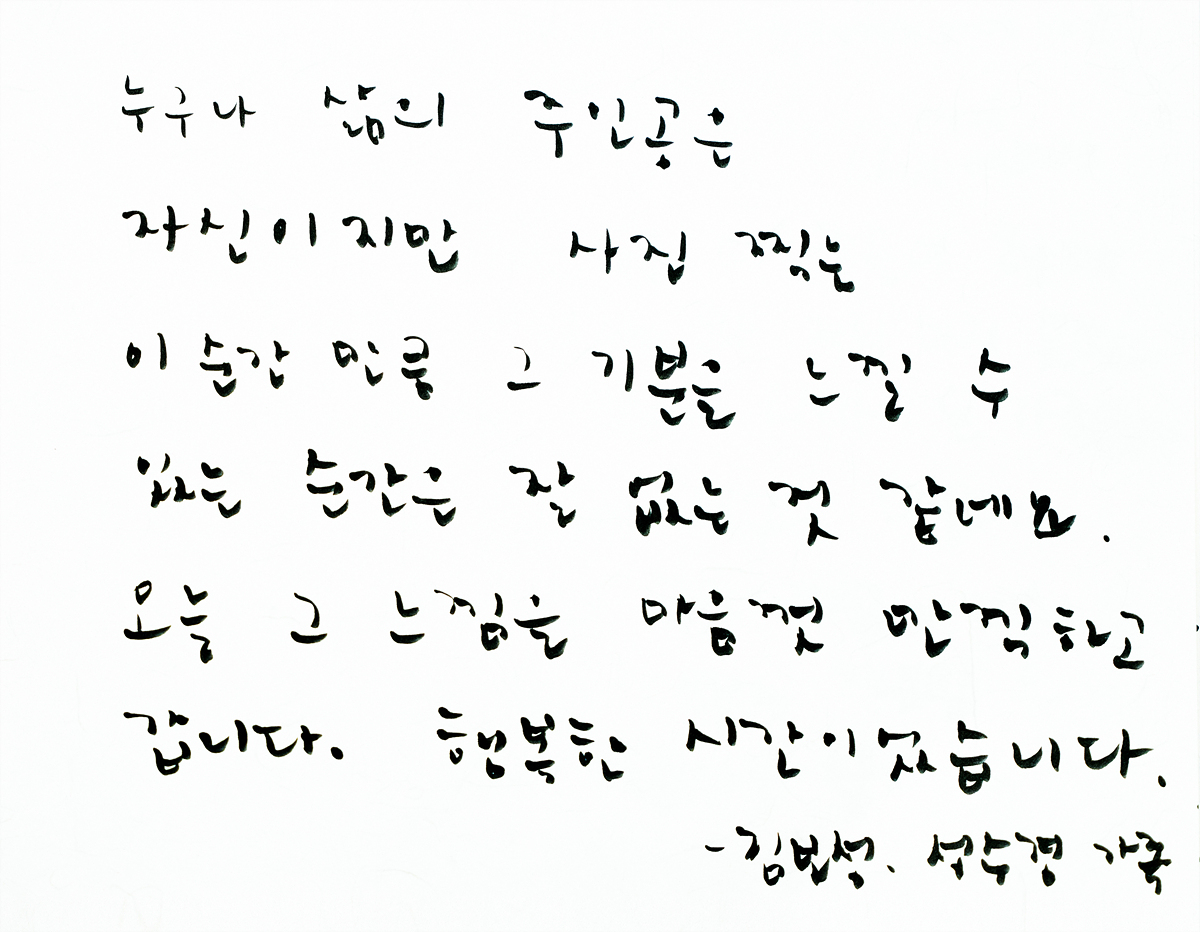 누구나 삶의 주인공은
자신이지만 사진 찍는
이 순간 만큼 그 기분을 느낄 수
있는 순간은 잘 없는 것 같네요.
오늘 그 느낌을 마음껏 만끽하고
갑니다. 행복한 시간이었습니다.
- 김범성. 성수경 가족